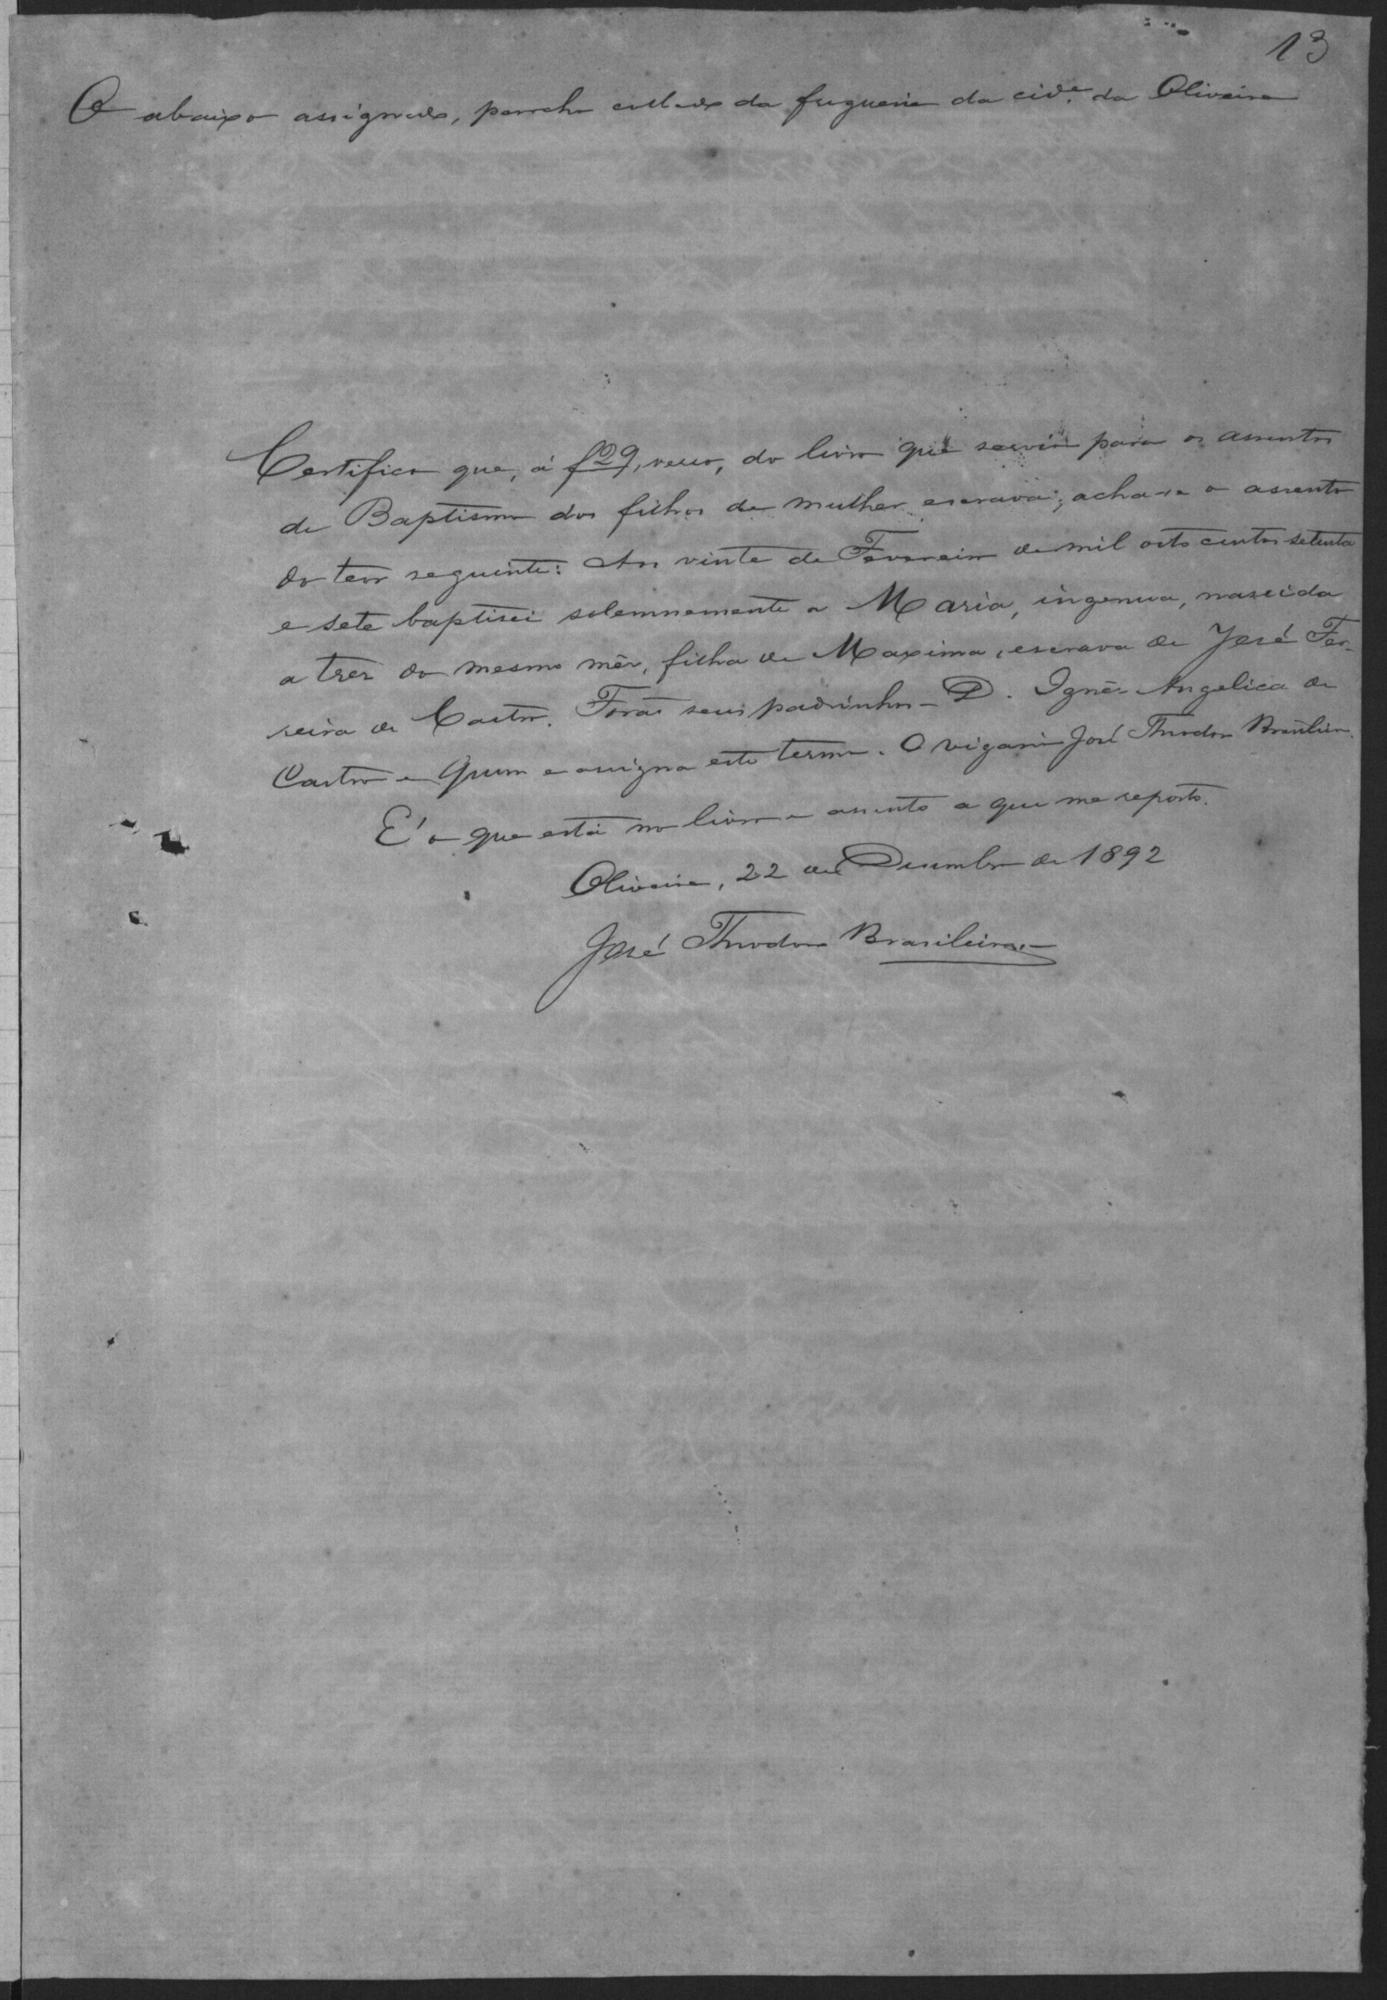 13
O abaixo assignado, parocho collado da freguesia da cid.e da Oliveira
Certifico que, á f 29, verso, do livro que servio para os assentos
de Baptismo dos filhos de mulher escrava; acha-se o assento
do teor seguinte: Aos vinte de Fevereiro de mil oito centos setenta
e sete baptisei solemnemente a Maria, ingenua, nascida
a tres do mesmo mês, filha de Maxima, escrava de José Fer-
reira de Castro. Forão seus padrinhos - D. Ignês Angelica de
Castro e quem assigna este termo. O vigario José Theodoro Brasileiro.
É o que está no livro e assento a que me reporto.
Oliveira, 22 de Desembro de 1892
José Theodoro Brasileiro.